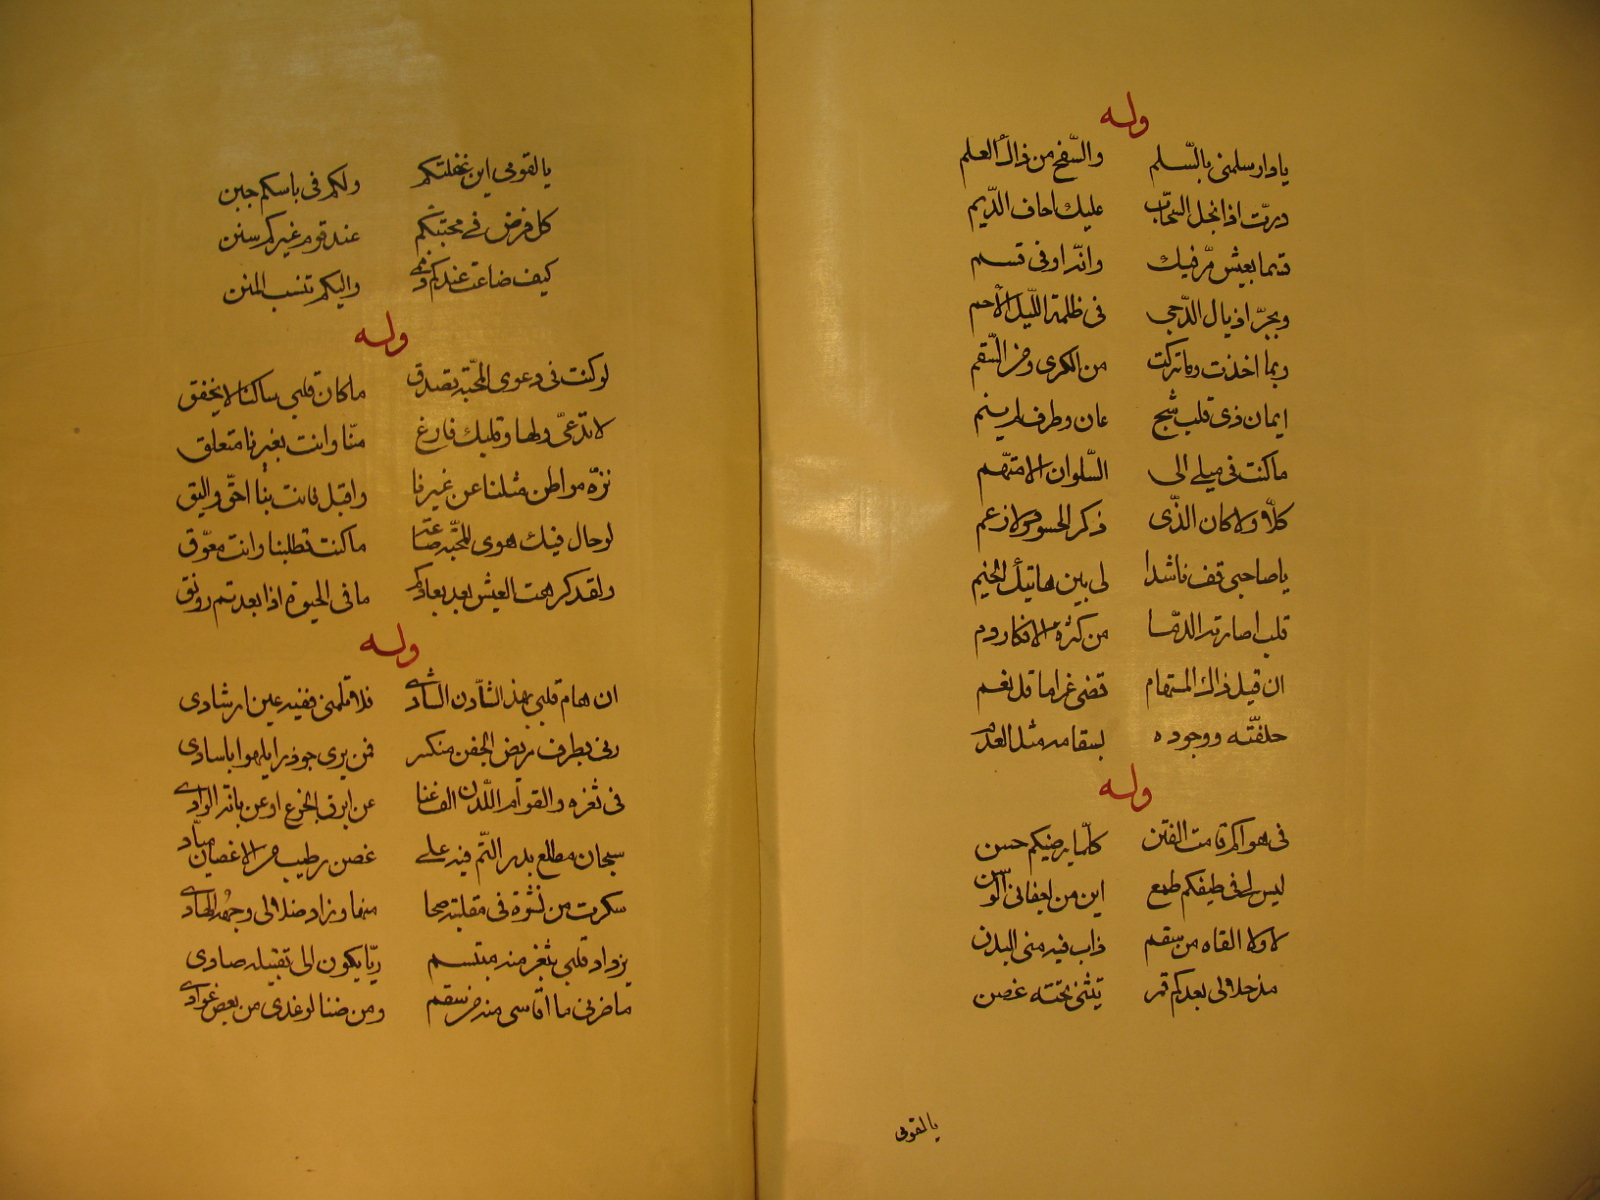 وله
يا دار سلمى بالسّلم والسّفح من ذاك العلم
درّت اذا انحل السّحاب عليك اخلاف الدّيم
قدما بعيش مرّ فيك وانّه اوفى قسم
وبجرّ اذيال الدّجى فى ظلمة اللّيل الاحم
وبما اخذت وما تركت من الكرى ومن السّقم
ايمان ذى قلب شج عان وطرف لم ينم
ما كنت فى ميلى الى السّلوان الا متهم
كلّا ولا كان الذّى ذكر الحسود ولا زعم
يا صاحبى قف ناشدا لى بين هاتيك الخيم
قلبا اصارته الدّما من كثرة الافكار دم
ان قيل ذاك المستهام قضى غراما قل نعم
خلفتّه ووجوده بسقامه مثل العدم
وله
فى هواكم قامت الفتن كلّما يرضيكم حسن
ليس لى فى طيفكم طمع اين من اجفانى الوسن
لا ولا القاه من سقم ذاب فيه منى البدن
مذ حلا لى بعدكم قمر يتثنى تحته غصن
يا لقومى
يا لقومى اين غفلتكم ولكم فى باسكم جبن
كل فرض فى محبتكم عند قوم غيركم سنن
كيف ضاعت عندكم ذممى واليكم تنسب المنن
وله
لو كنت فى دعوى المحبّة تصدق ما كان قلبى ساكنا لا يخفق
لا تدّعى ولها وقلبك فارغ منّا وانت بغيرنا متعلق
نزّه مواطن مثلنا عن غيرنا واقبل فانت بنا احق واليق
لو حال فيك هوى المحبّة صادقا ما كنت تطلبنا وانت معوّق
ولقد كرهت العيش بعد بعادكم ما فى الحيوة اذا بعدتم رونق
وله
ان هام قلبى بهذ الشّادن الشّادى فلا تلمنى ففيه عين ارشادى
رنى بطرف مريض الجفن منكسر فمن يرى جوذرا يلهو باسادى
فى ثغره والقوام اللّدن الف غنا عن ابرق الجزع او عن بانة الوادى
سبحان مطلع بدر التّم فيه على غصن رطيب من الاغصان ميّاد
سكرت من نشوة فى مقلته صحا منها وزاد ضلالى وجهه الهادى
يزداد قلبى بثغر منه مبتسم ريّا يكون الى تقبيله صادى
ما ضرنى ما اقاسى منه من سقم ومن ضنا لو غدى من بعض عوادى